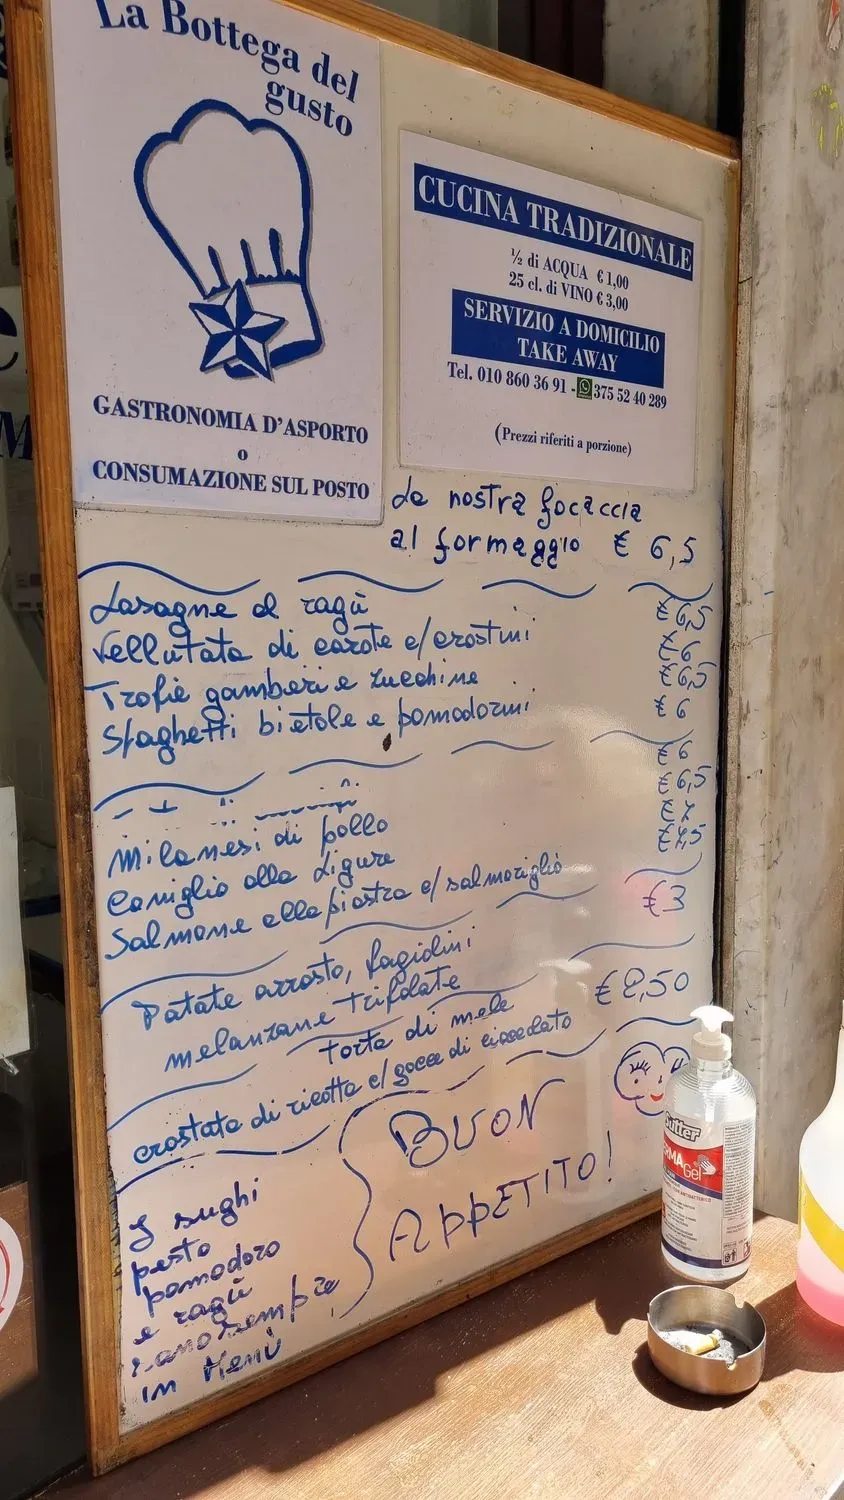 La Bottega del
gusto
GASTRONOMIA D'ASPORTO
o
CONSUMAZIONE SUL POSTO
CUCINA TRADIZIONALE
½ di ACQUA € 1,00
25 cl. di VINO € 3,00
SERVIZIO A DOMICILIO
TAKE AWAY
Tel. 010 860 36 91 - 375 52 40 289
(Prezzi riferiti a porzione)
La nostra focaccia
al formaggio € 6,5
Lasagne al ragù € 6,5
Vellutata di carote c/crostini € 6
Trofie gamberi e zucchine € 6,5
Spaghetti bietole e pomodorini € 6
€ 6
Milanesi di pollo € 6,5
Coniglio alla Ligure € 7
Salmone alla piastra c/ salmoriglio € 7,5
Patate arrosto, fagiolini € 3
melanzane trifolate
torta di mele € 2,50
crostata di ricotta c/gocce di cioccolato
BUON
APPETITO!
I sughi
pesto
pomodoro
e ragù
sono sempre
in Menù
Sutter
Gel